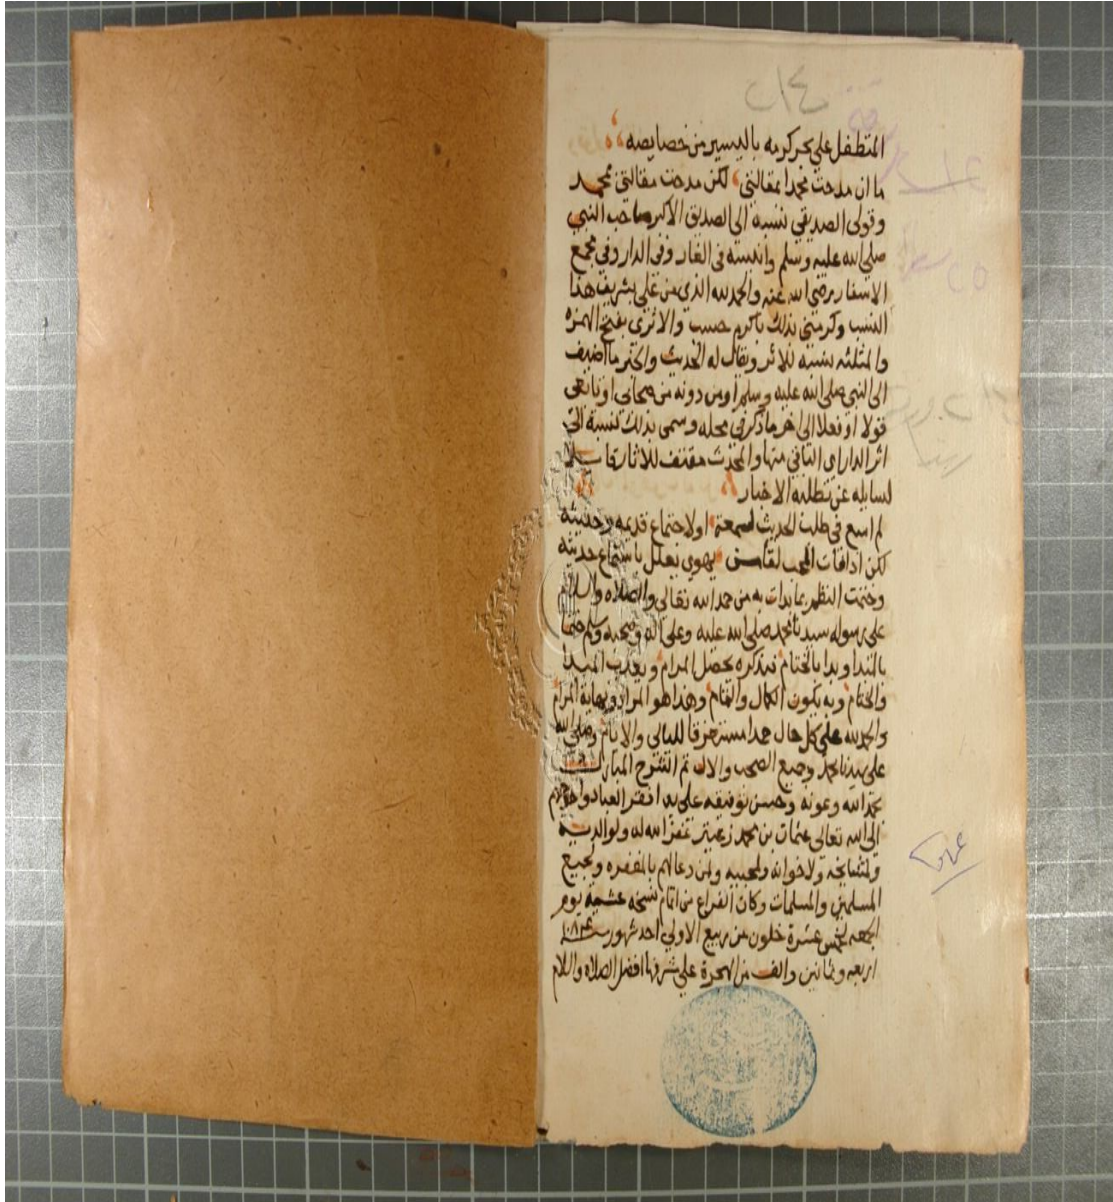 المتطفل علي بحر كرمه باليسير من خصايصه
ما ان مدحت محمدا بمقالتي لكن مدحت مقالتي بمحمد
وقولى الصديقي نسبة الى الصديق الأكبر صاحب النبي
صلى الله عليه وسلم وأنيسه فى الغار وفى الدار وفي مجمع
الاسفار رضي الله عنه والحمد لله الذي من علي بشريف هذا
النسب وكرمني بذلك باكرم حسب والاثرى بفتح الهمزه
والمثلثه نسبة للاثر ويقال له الحديث والخبر ما اضيف
الى النبي صلى الله عليه وسلم او من دونه من صحابى او تابعى
قولا او فعلا الى اخر ما ذكر في محله وسمى بذلك نسبة الى
اثر الدار اي الباقي منها والمحدث مقتف للاثار
لسايله عن تطلبه الاخبار
لم اسع في طلب الحديث لسمعة او لاجتماع قديمه وحديثه
لكن اذا فات المحب لقا من يهوى تعلل باستماع حديثه
وختمت النظم بما بدات به من حمد الله تعالى والصلاه والسلام
على رسوله سيدنا محمد صلى الله عليه وعلى اله وصحبه وسلم
بالختام بذكره يحصل المرام
والختام وبه يكون الكمال والتمام وهذا هو المراد ونهاية المرام
والحمد لله على كل حال حمدا مستغرقا لليالي والايام وصلى الله
على سيدنا محمد وجميع الصحب والال تم الشرح المبارك
بحمد الله وعونه وحسن توفيقه على يد افقر العباد واحوجهم
الى الله تعالى عثمان بن محمد غفر الله له ولوالديه
ولمشايخه ولاخوانه ولمحبيه ولمن دعا لهم بالمغفره ولجميع
المسلمين والمسلمات وكان الفراغ من اتمام نسخه عشية يوم
الجمعه لخمس عشرة خلون من ربيع الاولي احد شهور سنة ١٠٨٤
اربعه وثمانين والف من الهجرة علي شرفها افضل الصلاه والسلام